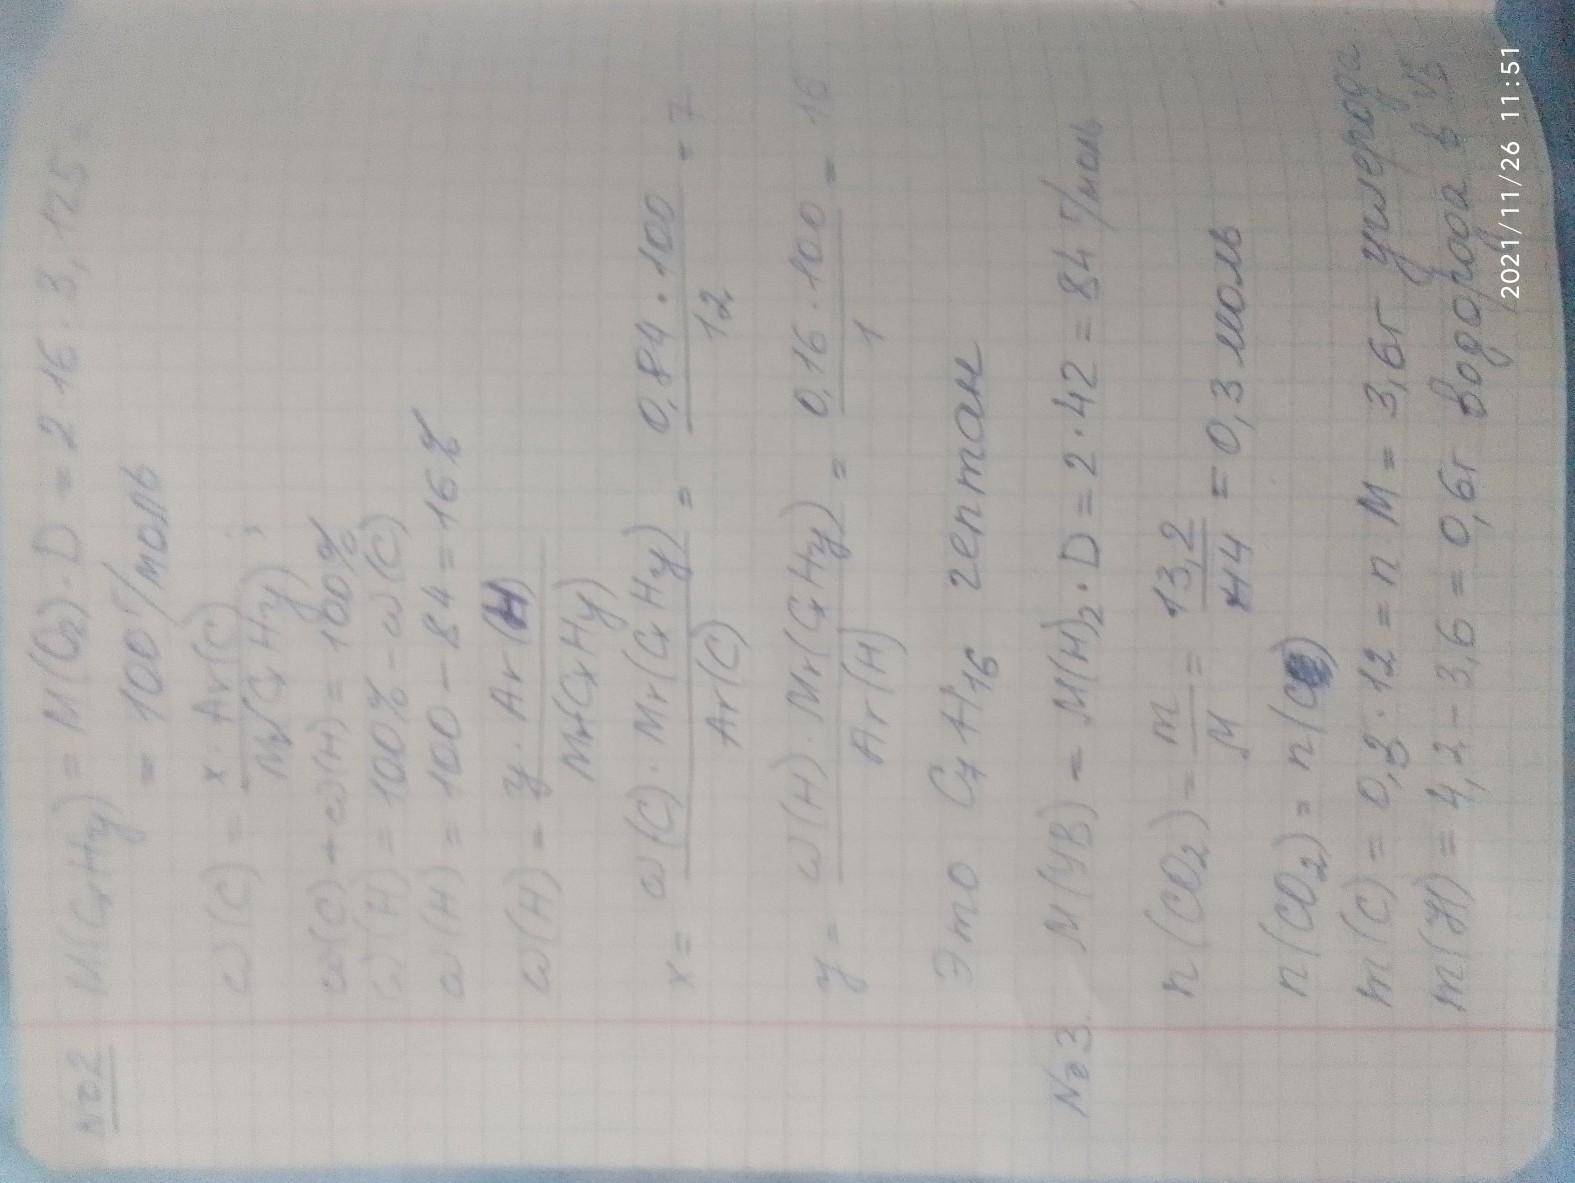 №2 M(CxHy) = M(O2) · D = 2 · 16 · 3,125 =
= 100 г/моль
ω(C) = x · Ar(C) / Mr(CxHy) ;
ω(C) + ω(H) = 100%
ω(H) = 100% - ω(C)
ω(H) = 100 - 84 = 16%
ω(H) = y · Ar(H) / Mr(CxHy)
x = ω(C) · Mr(CxHy) / Ar(C) = 0,84 · 100 / 12 = 7
y = ω(H) · Mr(CxHy) / Ar(H) = 0,16 · 100 / 1 = 16
Это C7H16 гептан
№3. M(УВ) = M(H)2 · D = 2 · 42 = 84 г/моль
n(CO2) = m / M = 13,2 / 44 = 0,3 моль
n(CO2) = n(C)
m(C) = 0,3 · 12 = n · M = 3,6г углерода
m(H) = 4,2 - 3,6 = 0,6г водорода в УВ
2021/11/26 11:51